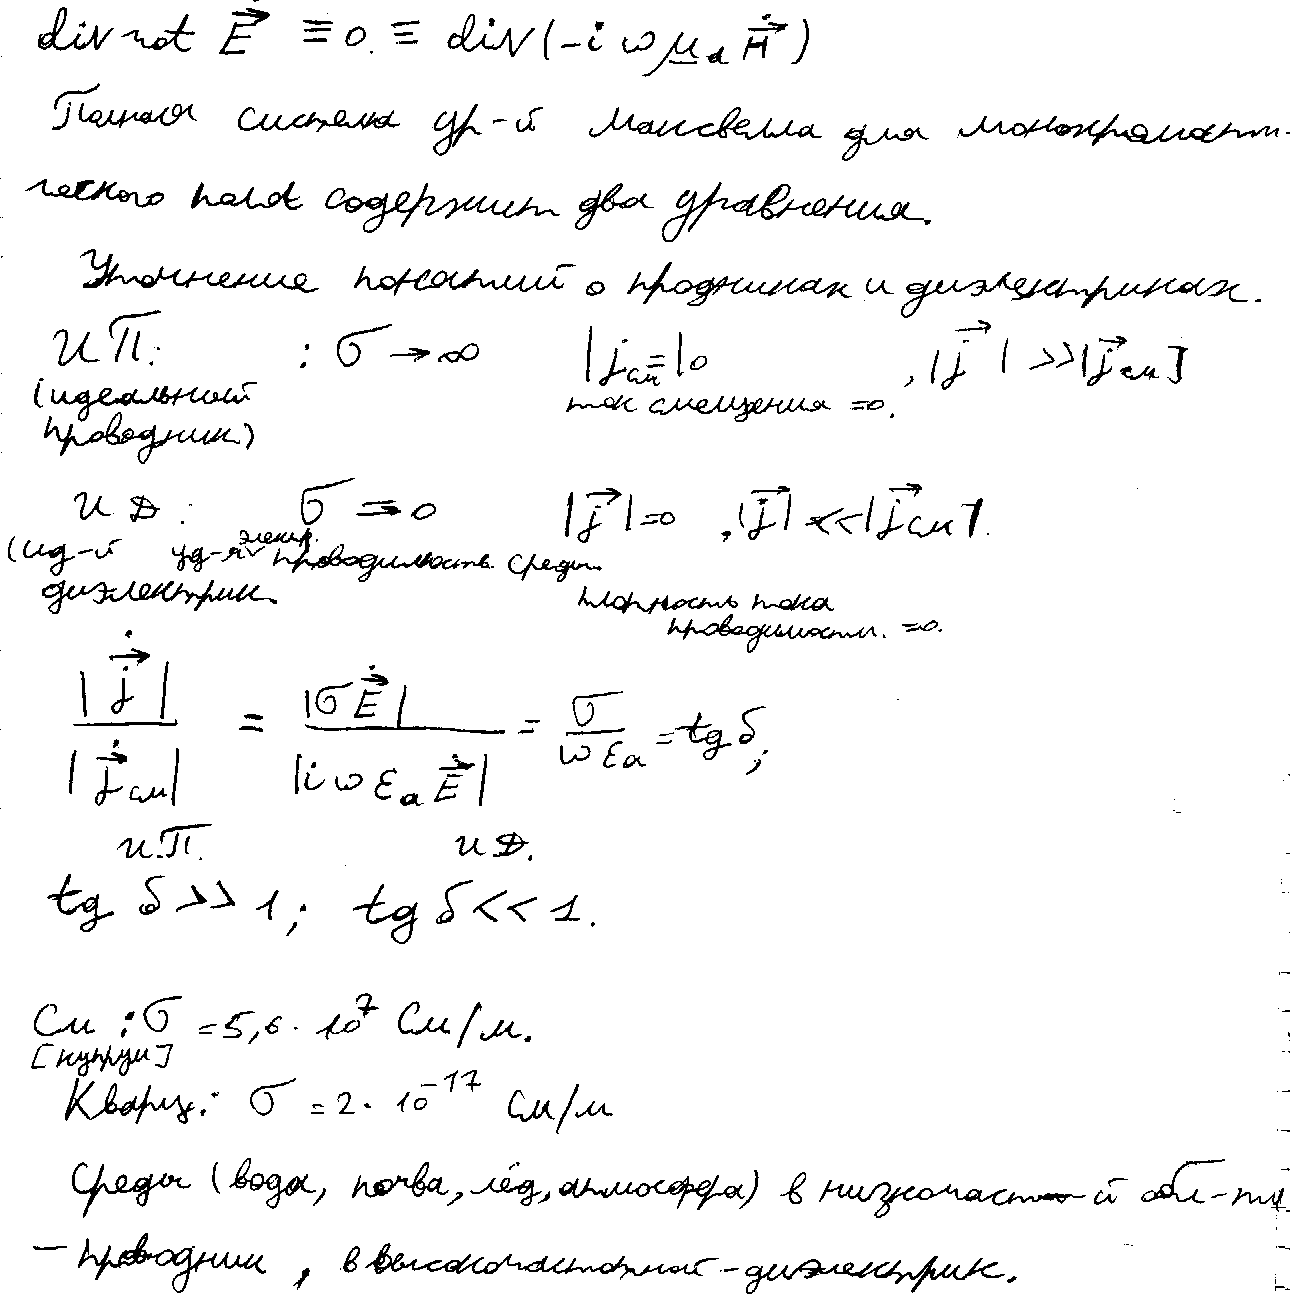 div rot E⃗ ≡ 0. ≡ div(-i ω μₐ H⃗)
Полная система ур-й Максвелла для монохромати-
ческого поля содержит два уравнения.
Уточнение понятий о проводниках и диэлектриках.
ИП: : σ → ∞ |j см = | 0 , |j⃗| >> |j⃗ см|
(идеальный ток смещения =0.
проводник)
ИД: σ = 0 |j⃗| = 0 , |j⃗| << |j⃗ см|.
(ид-й уд-я электр. проводимость среды.
диэлектрик. плотность тока
проводимости. =0.
|j⃗| / |j⃗ см| = |σE⃗| / |i ω εₐ E⃗| = σ / ωεₐ = tg δ;
и.П. и Д.
tg δ >> 1; tg δ << 1.
Cu : σ = 5,6 · 10⁷ См/м.
[купрум]
Кварц: σ = 2 · 10⁻¹⁷ См/м
Среды (вода, почва, лёд, атмосфера) в низкочаст-й обл-ти
– проводник, в высокочастотной – диэлектрик.